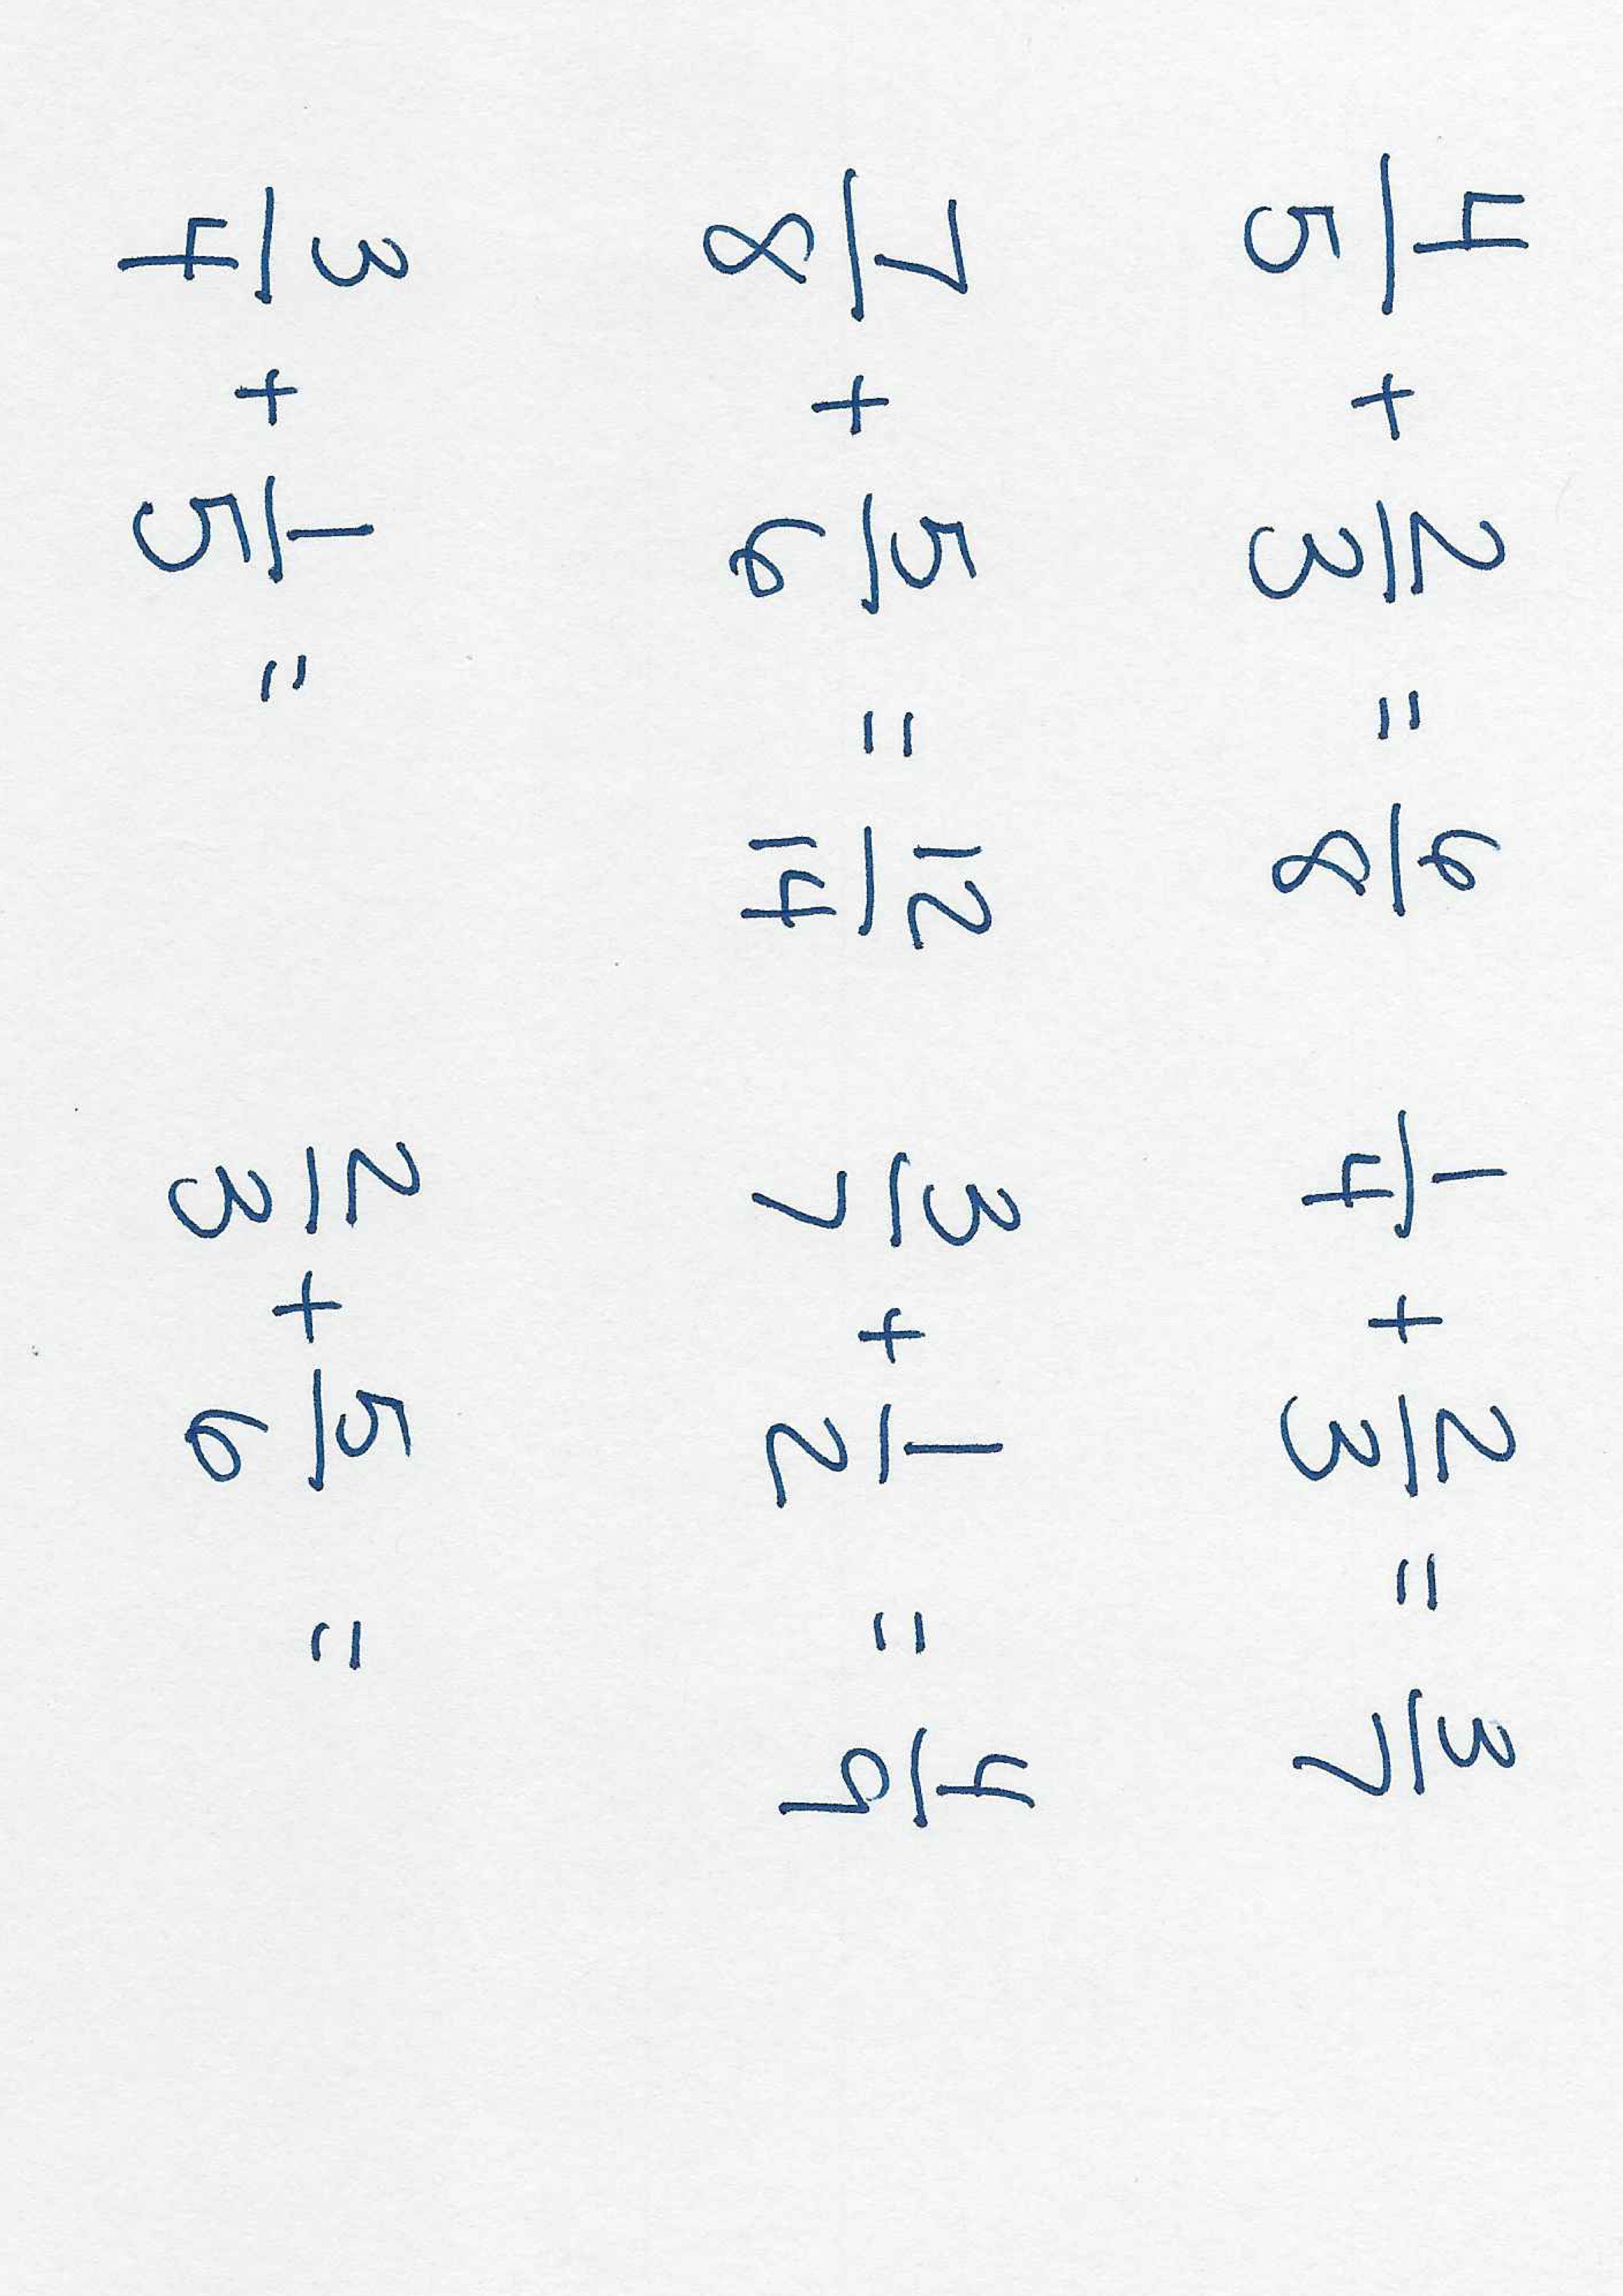 4/5 + 2/3 = 6/8    1/4 + 2/3 = 3/7
7/8 + 5/6 = 12/14    3/7 + 1/2 = 4/9
3/4 + 1/5 =    2/3 + 5/6 =